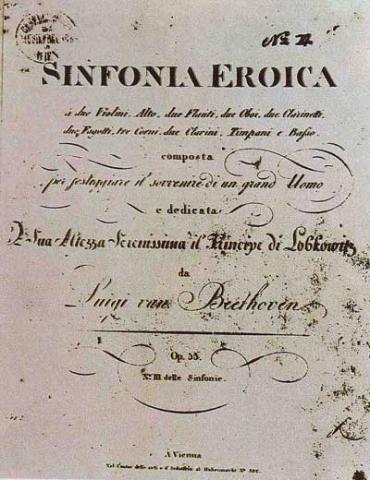 SINFONIA EROICA
à due Violini, Alto, due Flauti, due Oboi, due Clarinetti,
due Fagotti, tre Corni, due Clarini, Timpani e Basso.
composta
per festeggiare il sovvenire di un grand Uomo
e dedicata
A Sua Altezza Serenissima il Principe di Lobkowitz
da
Luigi van Beethoven
Op. 55.
No. III delle Sinfonie.
A Vienna